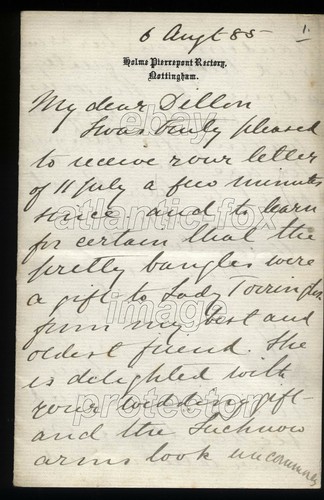 6 Augt 85
1.
Holme Pierrepont Rectory,
Nottingham.
My dear Dillon
I was truly pleased
to receive your letter
of 11 July a few minutes
since and to learn
for certain that the
pretty bangles were
a gift to Lady Torrington
from my best and
oldest friend. She
is delighted with
your wedding gift -
and the Lucknow
arms look uncommonly
ebay
atlantic-fox
image
protector